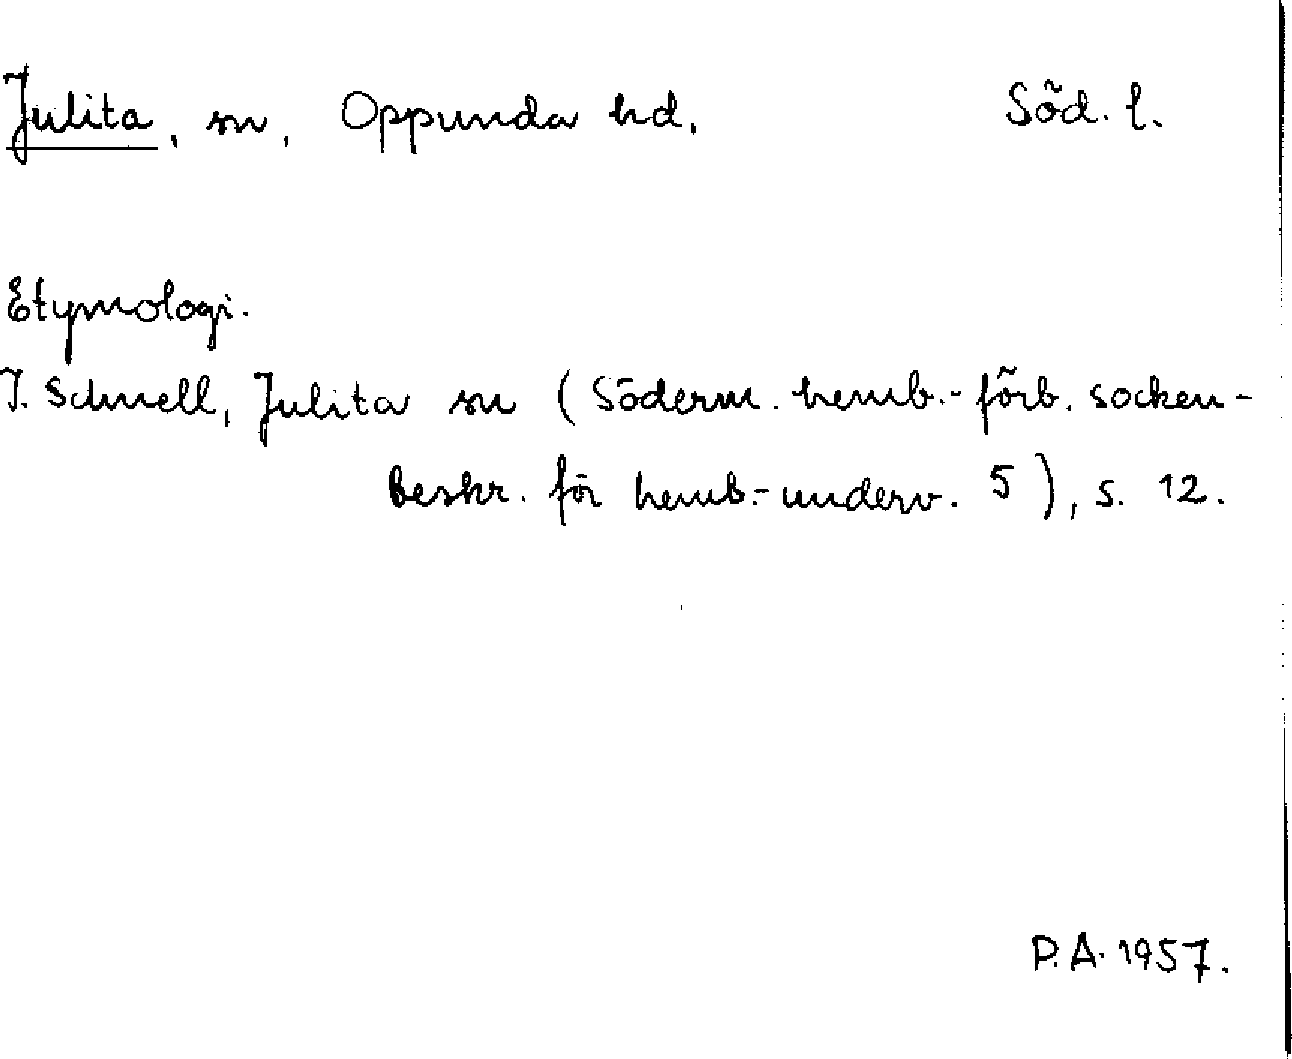 Julita, sn, Oppunda hd. Söd. l.
Etymologi.
I. Schnell, Julita sn (Söderm. hemb.-förb. socken-
beskr. för hemb.-underv. 5), s. 12.
P.A. 1957.